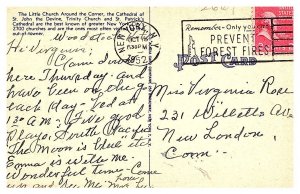 The Little Church Around the Corner, the Cathedral of
St. John the Devine, Trinity Church and St. Patrick's
Cathedral are the best known of greater New York's
2300 churches and are the ones most often visited by
out-of-towners.
Woodstock
Hi Virginia:
Came down
here Thursday - and
have been on the go
each day - to bed at
1:30 A.M. Five good
plays. South Pacific,
The Moon is Blue etc.
Emma is with me
Wonderful time - Come
and see me
Love
NEWBURGH, N.Y.
730 PM
1952
Remember - Only you can
PREVENT
FOREST FIRES!
POST CARD
Miss Virginia Rose
231 Willetts Ave
New London,
Conn.